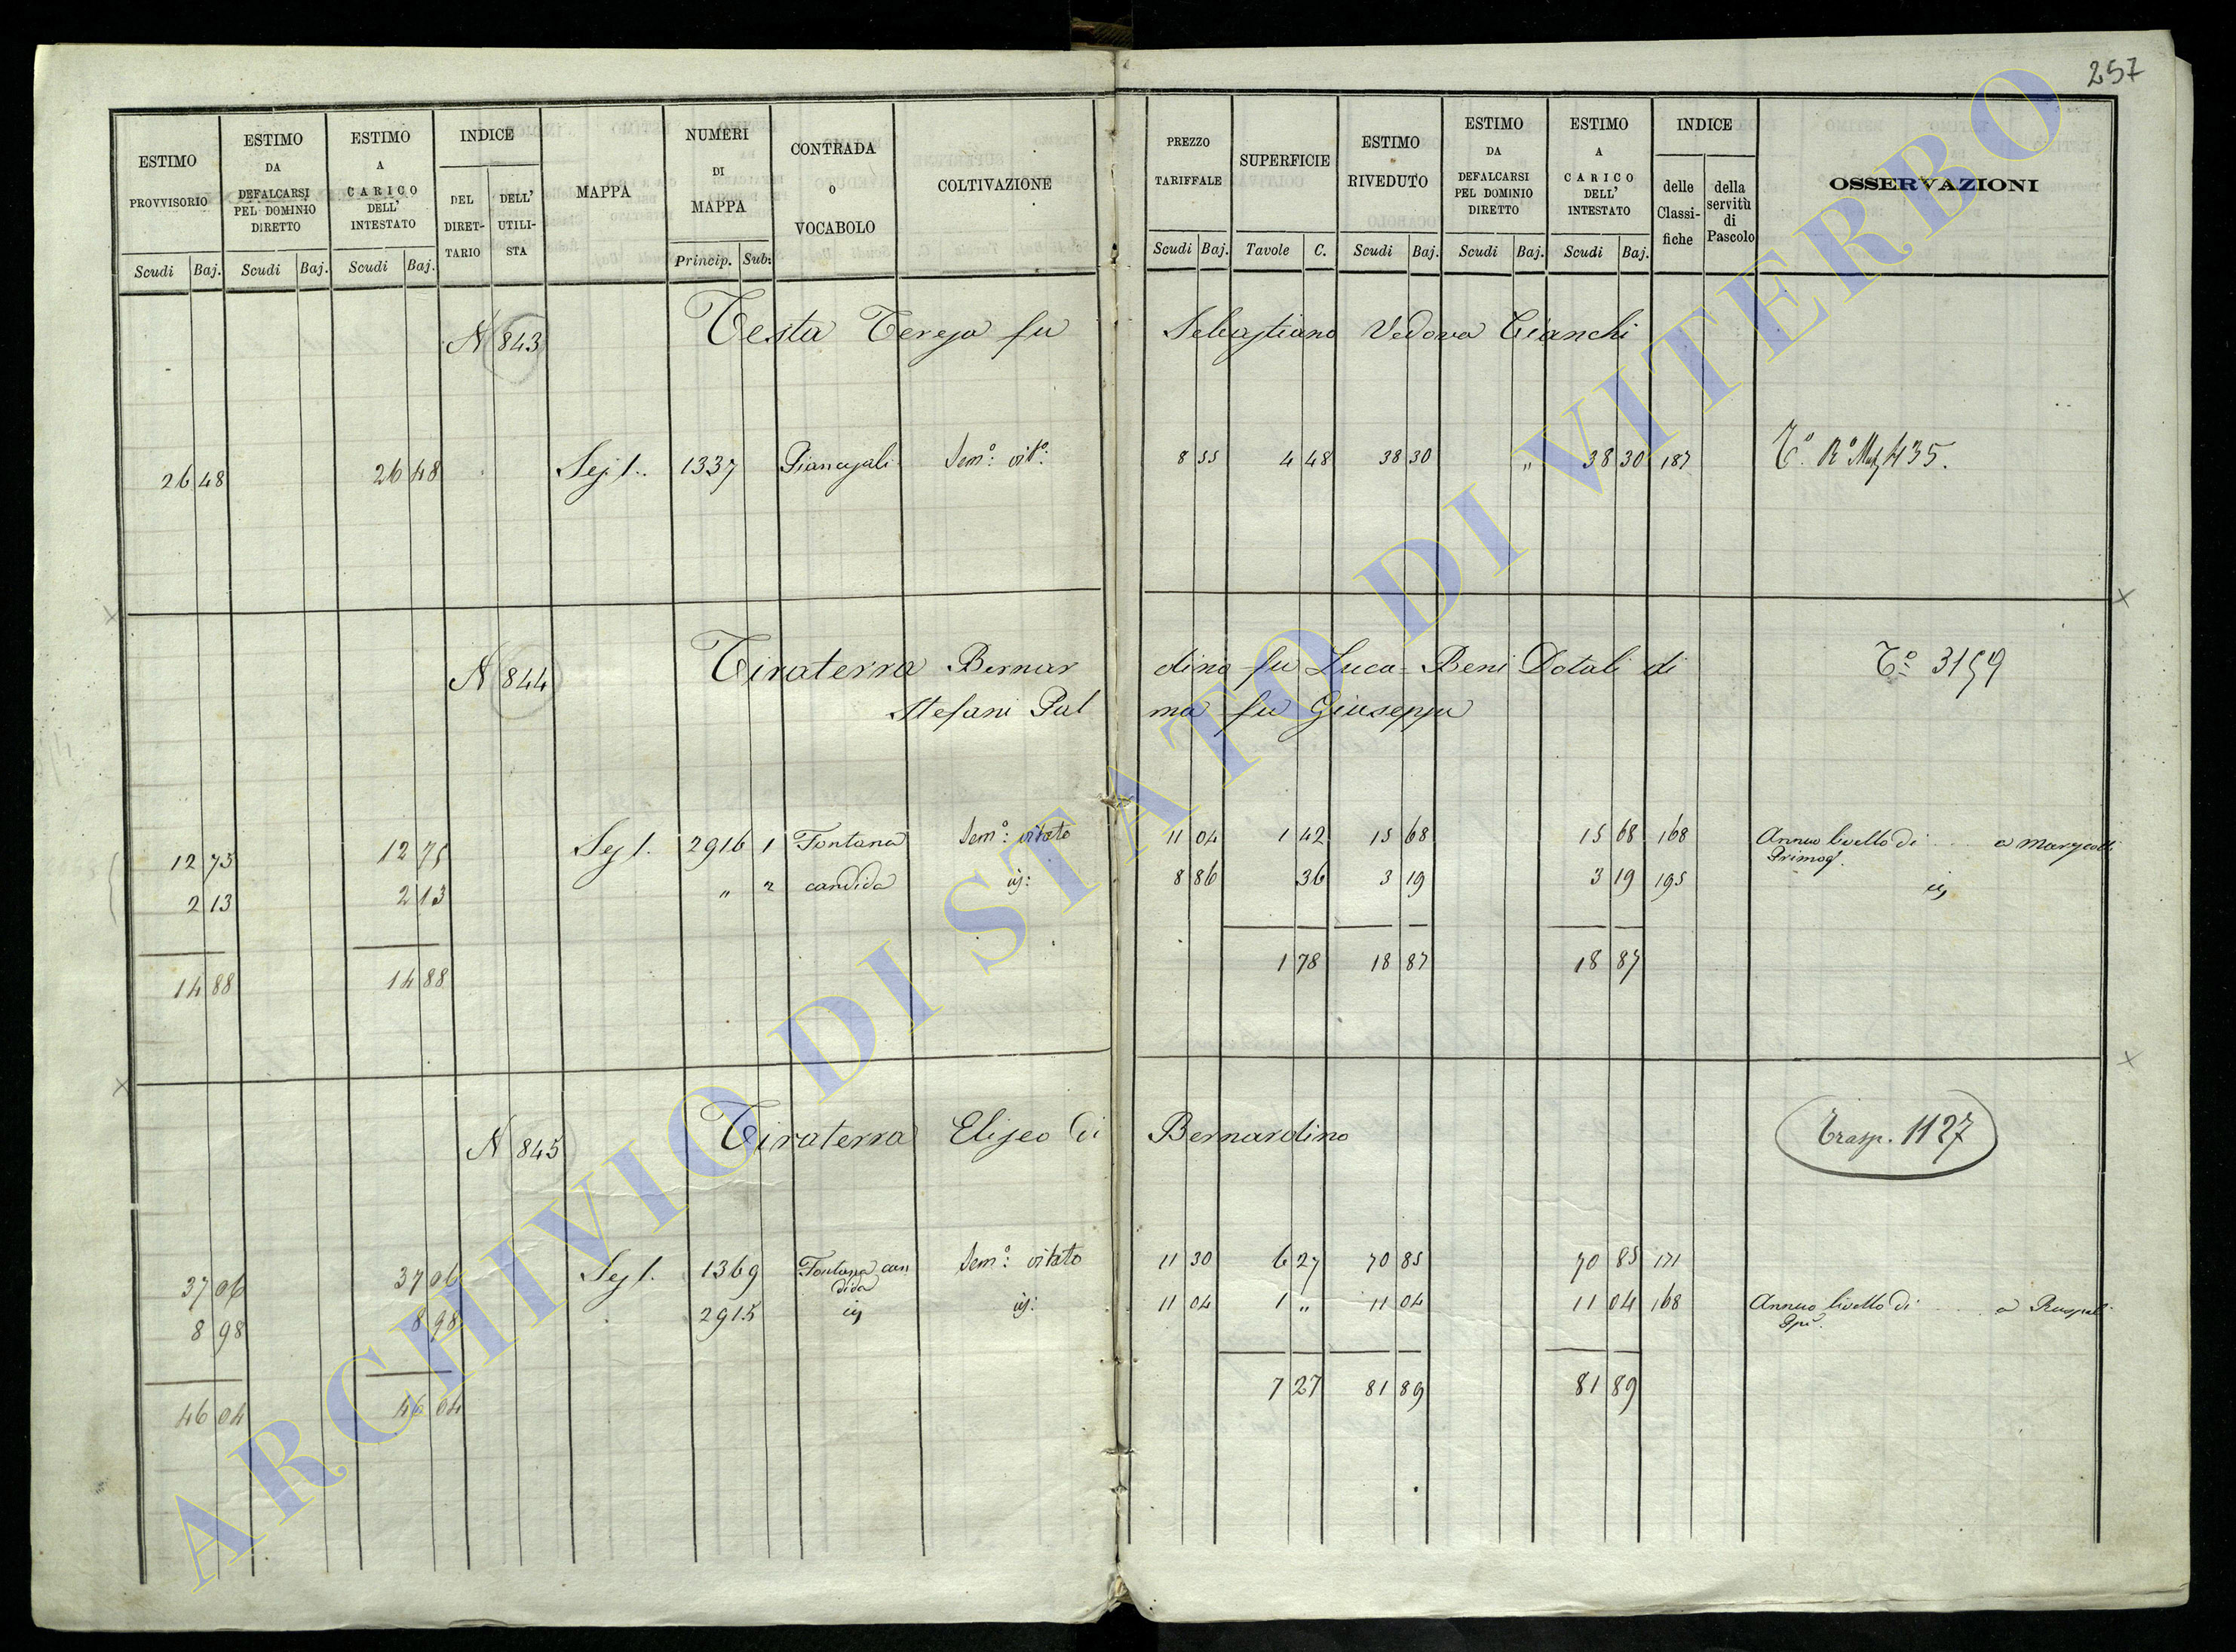 257
ESTIMO PROVVISORIO
Scudi Baj.
ESTIMO DA DEFALCARSI PEL DOMINIO DIRETTO
Scudi Baj.
ESTIMO A CARICO DELL' INTESTATO
Scudi Baj.
INDICE
DEL DIRET-TARIO
DELL' UTILI-STA
MAPPA
NUMERI DI MAPPA
Princip. Sub:
CONTRADA o VOCABOLO
COLTIVAZIONE
PREZZO TARIFFALE
Scudi Baj.
SUPERFICIE
Tavole C.
ESTIMO RIVEDUTO
Scudi Baj.
ESTIMO DA DEFALCARSI PEL DOMINIO DIRETTO
Scudi Baj.
ESTIMO A CARICO DELL' INTESTATO
Scudi Baj.
INDICE
delle Classi-fiche
della servitù di Pascolo
OSSERVAZIONI
N 843 Testa Teresa fu Sebastiano Vedova Cianchi
26 48 26 48 Sez 1. 1337 Sem°: vit°: 8 55 4 48 38 30 „ 38 30 187 435.
N 844 Tiraterra Bernardino fu Luca - Beni Dotali di T° 3159
Stefani Palma fu Giuseppe
12 75 12 75 Sez 1. 2916 1 Fontana Sem°: vitato 11 04 1 42 15 68 15 68 168 Annuo livello di a
Primog.
2 13 2 13 „ 2 candida id: 8 86 36 3 19 3 19 195 id
14 88 14 88 1 78 18 87 18 87
N 845 Tiraterra Eliseo di Bernardino Trasp. 1127
37 06 37 06 Sez 1. 1369 Fontana candida Sem°: vitato 11 30 6 27 70 85 70 85 171
8 98 8 98 2915 id id: 11 04 1 „ 11 04 11 04 168 Annuo livello di a Ruspoli
46 04 46 04 7 27 81 89 81 89
ARCHIVIO DI STATO DI VITERBO